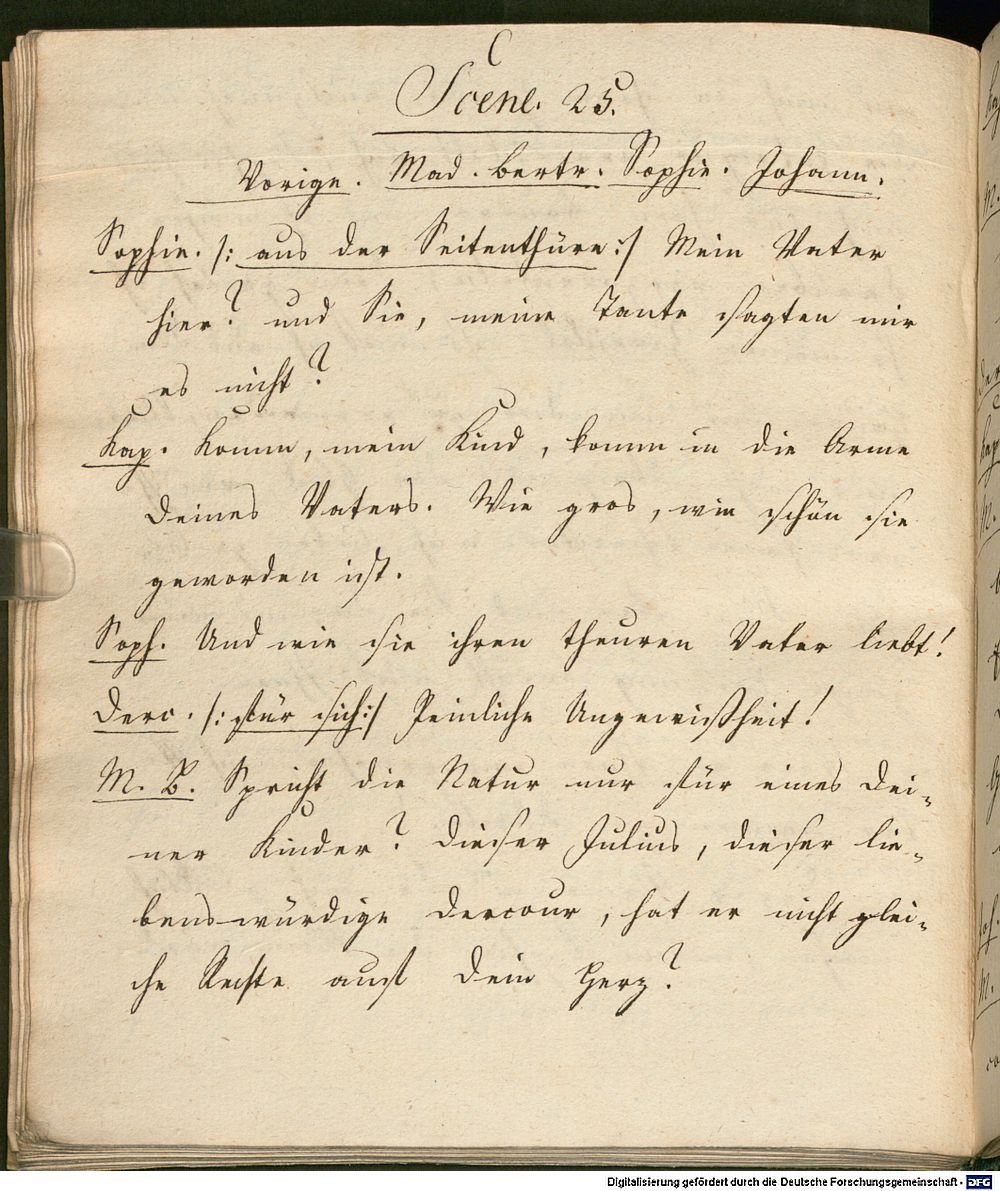 Scene. 25.
Vorige. Mad. Bertr. Sophie. Johann.
Sophie. /: aus der Seitenthüre :/ Mein Vater
hier? und Sie, meine Tante sagten mir
es nicht?
Kap. Komm, mein Kind, komm in die Arme
deines Vaters. Wie gros, wie schön sie
geworden ist.
Soph. Und wie sie ihren theuren Vater liebt!
Derc. /: für sich :/ Peinliche Ungewißheit!
M. B. Spricht die Natur nur für eines dei-
ner Kinder? dieser Julius, dieser lie-
benswürdige Dercour, hat er nicht glei-
che Rechte auf dein Herz?
Digitalisierung gefördert durch die Deutsche Forschungsgemeinschaft - DFG